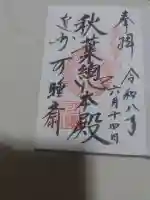 奉拝
令和八年
六月十四日
秋葉総本殿
遠州可睡斎